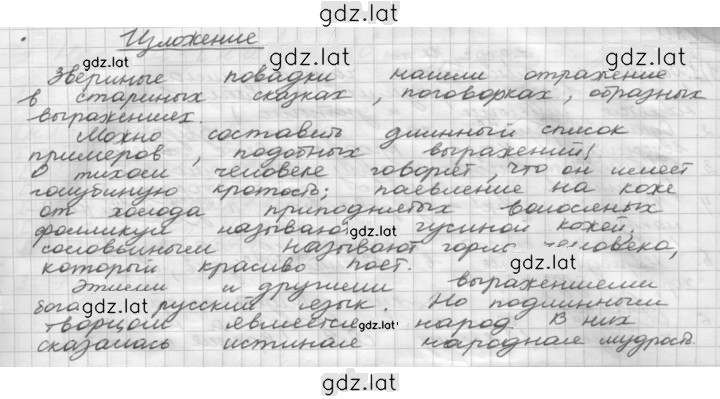 gdz.lat
Изложение
gdz.lat
Звериные повадки нашли отражение
в стариных сказках, поговорках, образных
выражениях.
gdz.lat
Можно составить длинный список
примеров, подобных выражений!
О тихом человеке говорят, что он имеет
голубиную кротость; появление на коже
от холода приподнятых волосяных
фолликул называют гусиной кожей;
gdz.lat
соловьиным называют горло человека,
который красиво поёт.
gdz.lat
Этими и другими выражениями
богат русский язык. Но подлинным
gdz.lat
творцом является народ. В них
gdz.lat
сказалась истиная народная мудрость.
gdz.lat